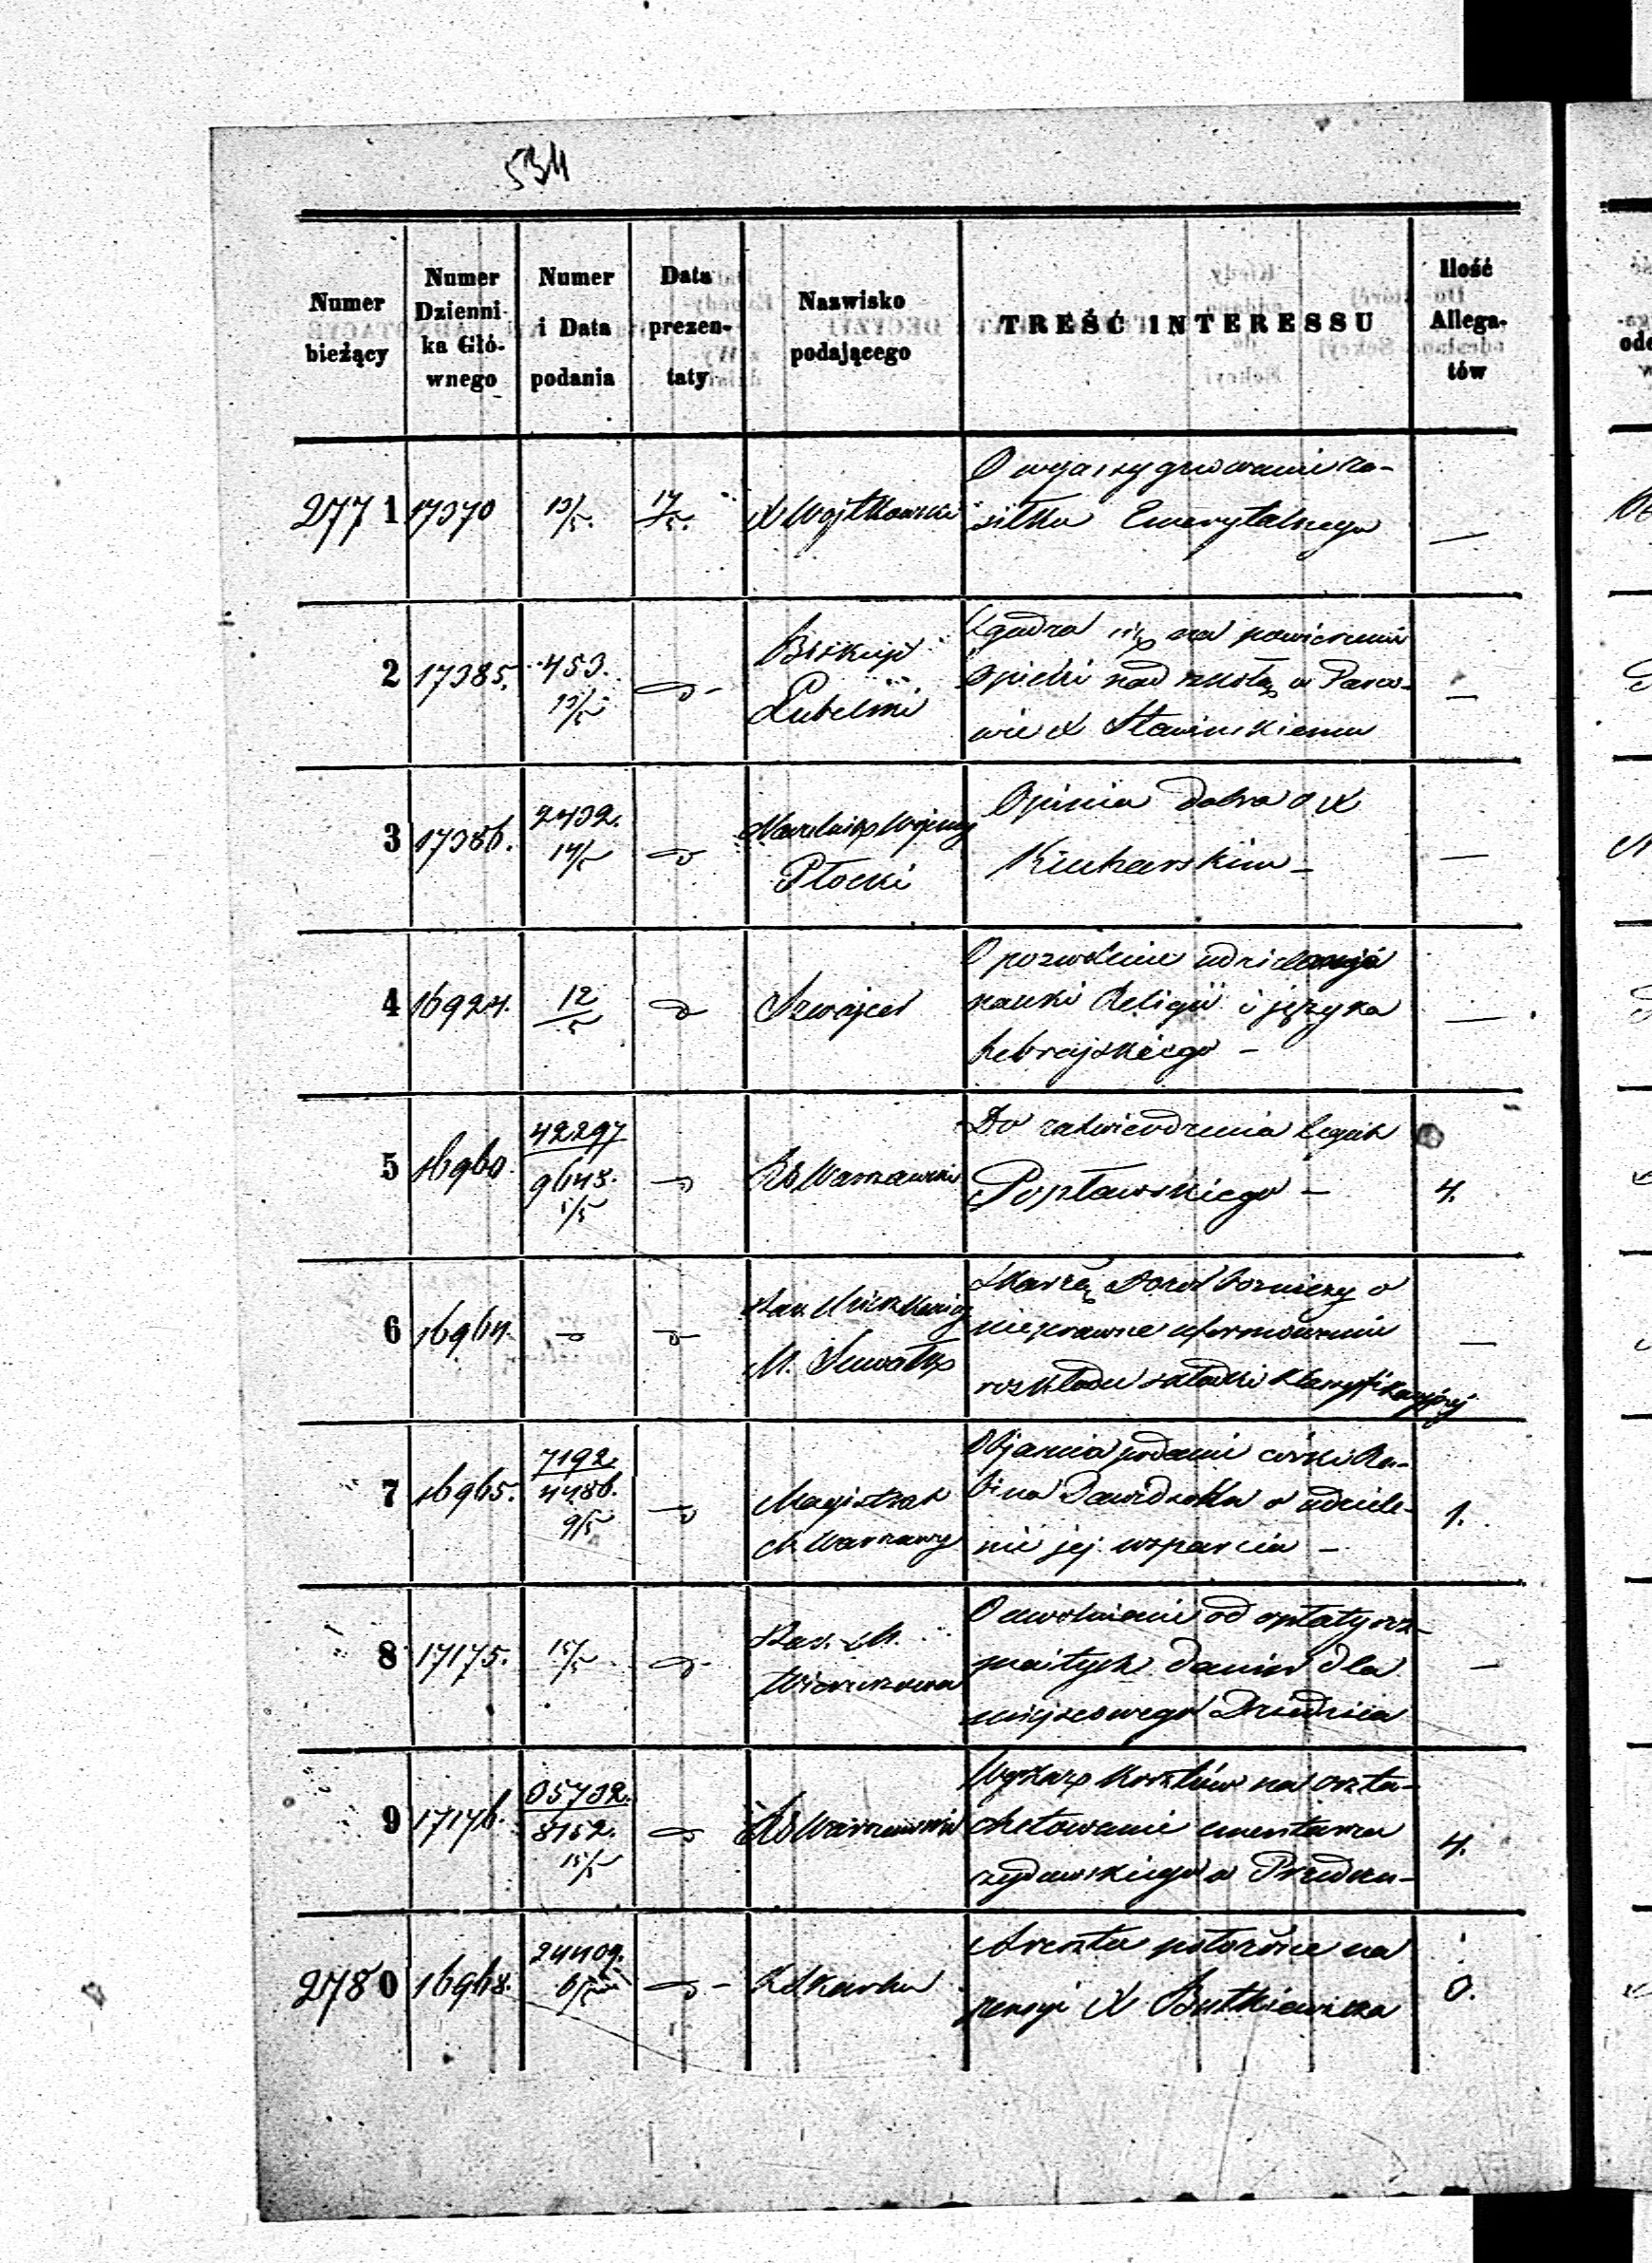 534
Numer bieżący
Numer Dzienni- ka Głó- wnego
Numer i Data podania
Data prezen- taty
Nazwisko podającego
TREŚĆ INTERESSU
Ilość Allega- tów
2771 17370 13/5. 17/5. X Wojtkowski
O wyassygnowanie za-
siłku Emerytalnego —
2 17385. 453. 13/5 d-
Biskup
Lubelski
Zgadza się na powierzenie
opieki nad szkołą w
X Sławińskiemu —
3 17386. 2432. 14/5 d
Naczelnik Wojenny
Płocki
Opinia dobra o X
Kucharskim — —
4 16924. 12/5 d Szwajcer
O pozwolenie udzielania
nauki Religii i języka
hebrajskiego — —
5 16960. 42297/9648. 1/5 d RG Warszawski
Do zatwierdzenia legat
Popławskiego — 4.
6 16964. d d
M. Suwałk
Skarżą Dozór Bożniczy o
nieprawne uformowanie
rozkładu składki klassyfikacyjnej —
7 16965. 7192/4486. 9/5 d
Magistrat
M. Warszawy
Objaśnia podanie córki Ra-
bina o udziele-
nie jej wsparcia — 1.
8 17175. 15/5 d
M.
O uwolnienie od opłaty roz-
maitych danin dla
miejscowego Dziedzica —
9 17176. 35732./8152. 15/5 d RG Warszawski
Wykaz kosztów na oszta-
chetowanie cmentarza
żydowskiego w 4.
2780 16968. 24409. 6/5 d- K Skarbu
Areszta położone na
pensyi X Butkiewicza 0.